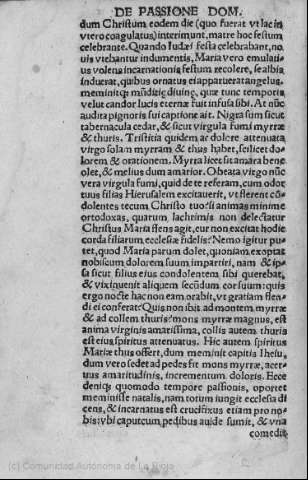 DE PASSIONE DOM.
dum Christum eodem die (quo fuerat vt lac in
vtero coagulatus) interimunt, matre hoc festum
celebrante. Quando Iudæi festa celebrabant, no
uis vtebantur indumentis, Maria vero emulatius
volens incarnationis festum recolere, se albis
induerat, quibus ornatus ei apparuerat angelus.
meminitq; diuinę, quæ tunc temporis
velut candor lucis eternæ fuit infusa sibi. At nūc
audita pignoris sui captione ait. Nigra sum sicut
tabernacula cedar, & sicut virgula fumi myrræ
& thuris. Tristitia quidem ac dolore attenuata
virgo solam myrram & thus habet, scilicet do-
lorem & orationem. Myrra licet sit amara bene
olet, & melius dum amarior. O beata virgo nūc
vere virgula fumi, quid de te referam, cum odor
tuus filias Hierusalem excitauerit, vt flerent cō-
dolentes tecum Christo tuo: si animas minime
ortodoxas, quarum lachrimis non delectatur
Christus Maria flens agit, cur non excitat hodie
corda filiarum ecclesiæ fidelis? Nemo igitur pu-
tet, quod Maria parum dolet, quoniam exoptat
nobiscum dolorem suum impartiri, nam & ip-
sa sicut filius eius condolentem sibi querebat,
& vix inuenit aliquem secūdum cor suum: quis
ergo nocte hac non eam orabit, vt gratiam flen-
di ei conferat? Quis non ibit ad montem myrræ
& ad collem thuris? mons myrræ magnus, est
anima virginis amarissima, collis autem thuris
est eius spiritus attenuatus. Hic autem spiritus
Mariæ thus offert, dum meminit capitis Ihesu,
dum vero sedet ad pedes fit mons myrræ, acer-
uus amaritudinis, incrementum doloris. Ecce
deniq; quomodo tempore passionis, oportet
meminisse natalis, nam totum iungit ecclesia di
cens, & incarnatus est crucifixus etiam pro no-
bis: vbi caput cum, pedibus auide sumit, & vna
comedit,
(c) Comunidad Autónoma de La Rioja